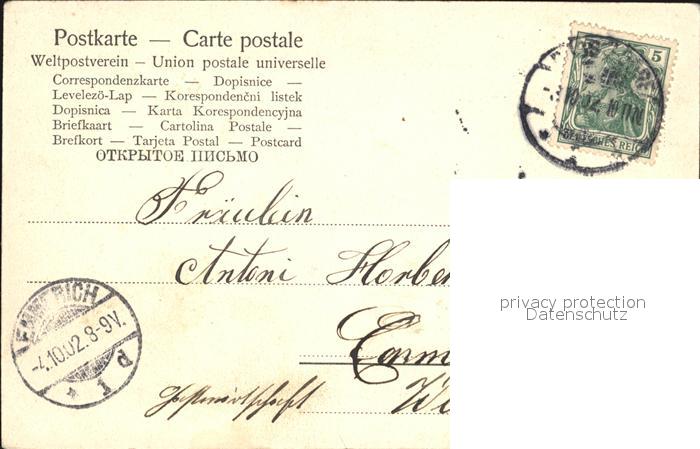 Postkarte — Carte postale
Weltpostverein — Union postale universelle
Correspondenzkarte — Dopisnice —
Levelezö-Lap — Korespondenční listek
Dopisnica — Karta Korespondencyjna
Briefkaart — Cartolina Postale —
Brefkort — Tarjeta Postal — Postcard
ОТКРЫТОЕ ПИСЬМО
5
DEUTSCHES REICH
Fräulein
Antoni
privacy protection
Datenschutz
EMMERICH
-4.10.02.8-9V.